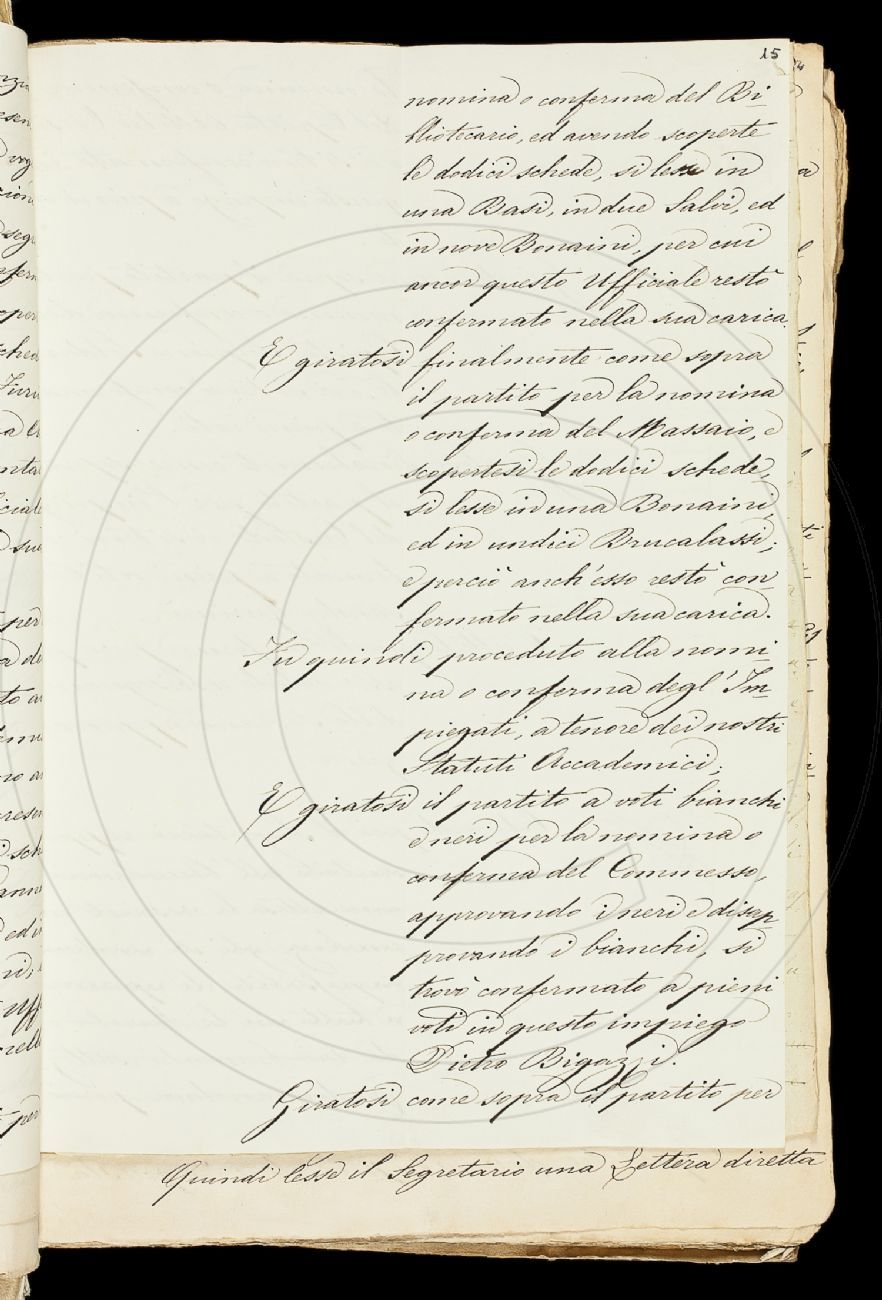 15
nomina o conferma del Bi-
bliotecario, ed avendo scoperte
le dodici schede, si lesse in
una Basi, in due Salvi, ed
in nove Bonaini, per cui
ancor questo Ufficiale restò
confermato nella sua carica.
E giratosi finalmente come sopra
il partito per la nomina
o conferma del Massaio, e
scopertesi le dodici schede,
si lesse in una Bonaini,
ed in undici Brucalassi;
e perciò anch'esso restò con-
fermato nella sua carica.
Fu quindi proceduto alla nomi-
na o conferma degl'Im-
piegati, a tenore dei nostri
Statuti Accademici;
E giratosi il partito a voti bianchi
e neri per la nomina o
conferma del Commesso,
approvando i neri e disap-
provando i bianchi, si
trovò confermato a pieni
voti in questo impiego
Pietro Bigazzi.
Giratosi come sopra il partito per
Quindi lesse il Segretario una Lettera diretta